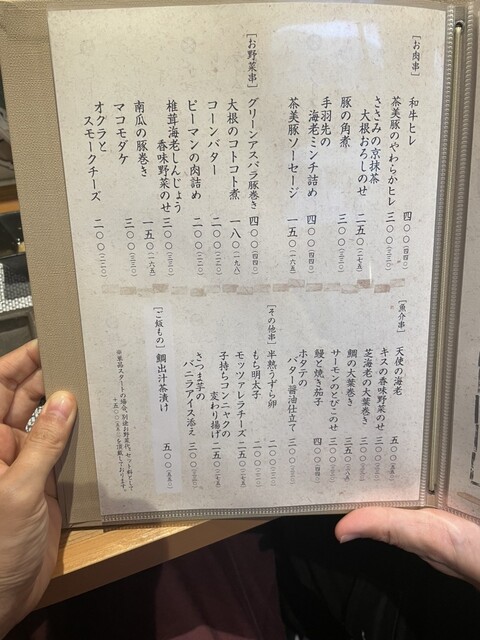 ［お肉串］
和牛ヒレ 四〇〇（四四〇）
茶美豚のやわらかヒレ 三〇〇（三三〇）
ささみの京抹茶
大根おろしのせ 二五〇（二七五）
豚の角煮 三〇〇（三三〇）
手羽先の
海老ミンチ詰め 四〇〇（四四〇）
茶美豚ソーセージ 一五〇（一六五）
［お野菜串］
グリーンアスパラ豚巻き 四〇〇（四四〇）
大根のコトコト煮 一八〇（一九八）
コーンバター 二〇〇（二二〇）
ピーマンの肉詰め 二〇〇（二二〇）
椎茸海老しんじょう
香味野菜のせ 三〇〇（三三〇）
南瓜の豚巻き 一五〇（一六五）
マコモダケ 三〇〇（三三〇）
オクラと
スモークチーズ 二〇〇（二二〇）
［魚介串］
天使の海老 五〇〇（五五〇）
キスの香味野菜のせ 三〇〇（三三〇）
芝海老の大葉巻き 三〇〇（三三〇）
鯛の大葉巻き 三五〇（三八五）
サーモンのとびこのせ 三〇〇（三三〇）
鰻と焼き茄子 四〇〇（四四〇）
ホタテの
バター醤油仕立て 三〇〇（三三〇）
［その他串］
半熟うずら卵 二〇〇（二二〇）
もち明太子 二〇〇（二二〇）
モッツァレラチーズ 二五〇（二七五）
子持ちコンニャクの
変わり揚げ 二五〇（二七五）
さつま芋の
バニラアイス添え 三〇〇（三三〇）
［ご飯もの］
鯛出汁茶漬け 五〇〇（五五〇）
※単品スタートの場合、別途お野菜代、セット料として
を頂戴しております。